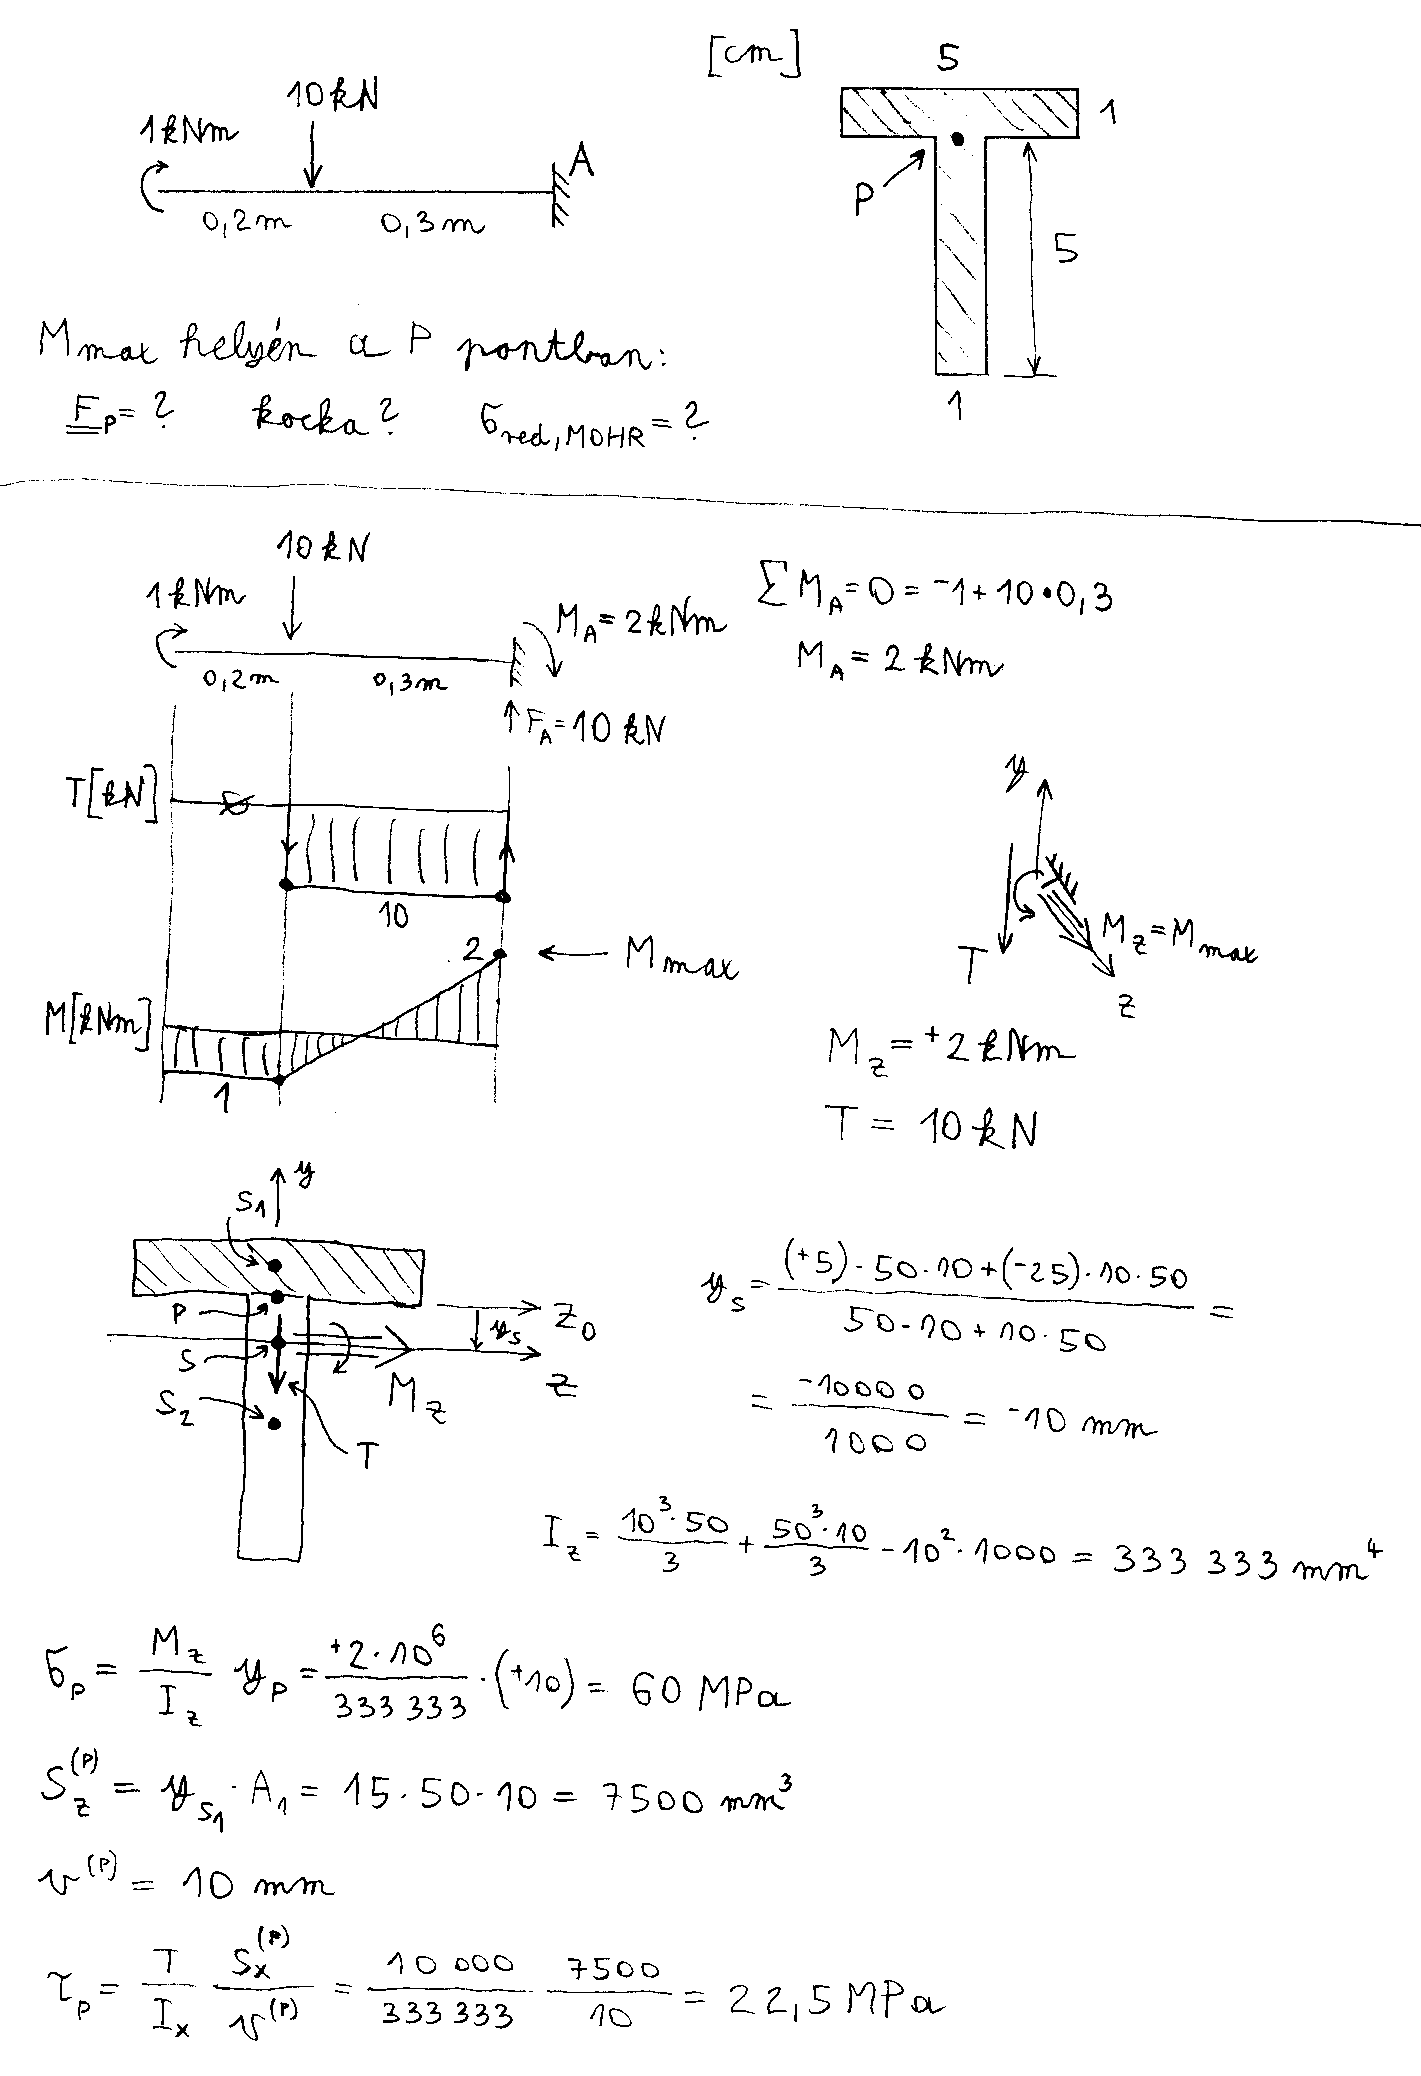 [cm]
5
10 kN
1 kNm
A
1
P
0,2 m
0,3 m
5
1
Mmax helyén a P pontban:
F_P = ? kocka? σ_red, MOHR = ?
10 kN
1 kNm
M_A = 2 kNm
0,2 m
0,3 m
↑ F_A = 10 kN
∑ M_A = 0 = -1 + 10 • 0,3
M_A = 2 kNm
T [kN]
10
2
← Mmax
M [kNm]
1
y
T
M_z = Mmax
z
M_z = +2 kNm
T = 10 kN
y
S_1
P
z_0
y_s
S
z
M_z
S_2
T
y_s = ((+5) · 50 · 10 + (-25) · 10 · 50) / (50 · 10 + 10 · 50) =
= -10000 / 1000 = -10 mm
I_z = 10³ · 50 / 3 + 50³ · 10 / 3 - 10² · 1000 = 333 333 mm⁴
σ_P = M_z / I_z y_P = +2 · 10⁶ / 333 333 · (+10) = 60 MPa
S_z^(P) = y_S1 · A_1 = 15 · 50 · 10 = 7500 mm³
v^(P) = 10 mm
τ_P = T / I_x S_x^(P) / v^(P) = 10 000 / 333 333 7500 / 10 = 22,5 MPa